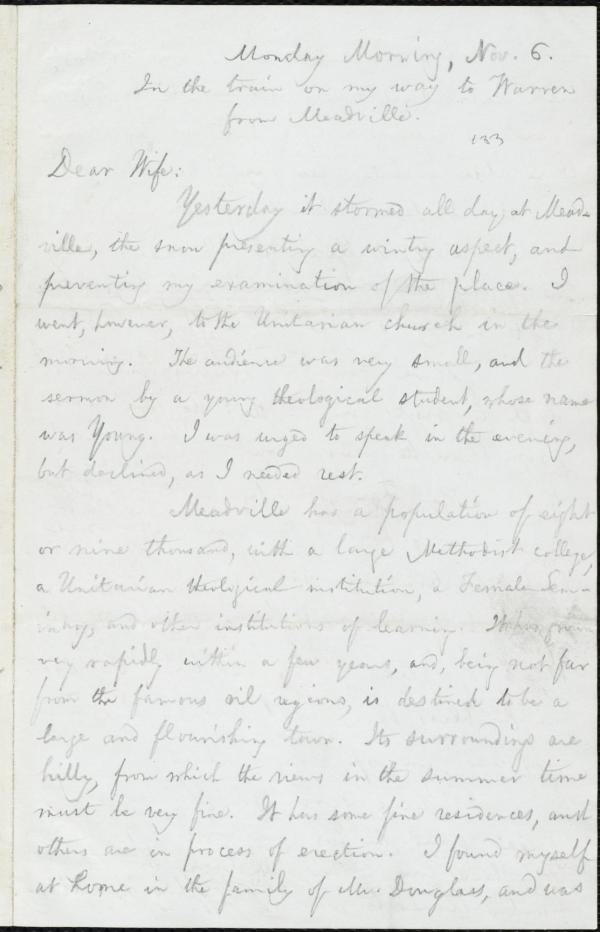 Monday Morning, Nov. 6.
In the train on my way to Warren
from Meadville.
133
Dear Wife:
Yesterday it stormed all day at Mead-
ville, the snow presenting a wintry aspect, and
preventing my examination of the place. I
went, however, to the Unitarian church in the
morning. The audience was very small, and the
sermon by a young theological student, whose name
was Young. I was urged to speak in the evening,
but declined, as I needed rest.
Meadville has a population of eight
or nine thousand, with a large Methodist college,
a Unitarian theological institution, a Female Sem-
inary, and other institutions of learning. It has grown
very rapidly within a few years, and, being not far
from the famous oil regions, is destined to be a
large and flourishing town. Its surroundings are
hilly, from which the views in the summer time
must be very fine. It has some fine residences, and
others are in process of erection. I found myself
at home in the family of Mr. Douglass, and was